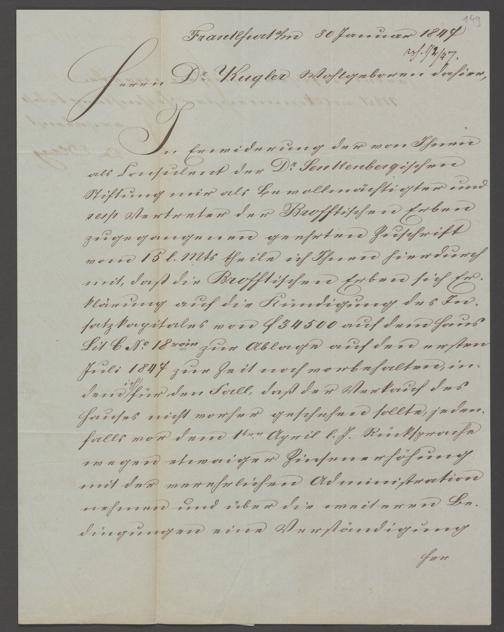 149
Frankfurt a/m 30 Januar 1847
Herrn Dr. Kugler Wohlgeboren dahier,
In Erwiderung der von Ihnen
als Consulent der Dr. Senkenbergischen
Stiftung mir als Bevollmächtigter und
resp Vertreter der Brofftischen Erben
zugegangenen geehrten Zuschrift
vom 15 l. Mts theile ich Ihnen hierdurch
mit, daß die Brofftischen Erben sich Er-
klärung auf die Kündigung des In-
satzkapitales von f 34500 auf dem Haus
Lit C No. 18 zur Ablage auf den ersten
Juli 1847 zur Zeit noch vorbehalten, in-
dem ich für den Fall, daß der Verkauf des
Hauses nicht vorher geschehen sollte, jeden-
falls vor dem 1ten April l. J. Rücksprache
wegen etwaiger Zinsenerhöhung
mit der verehrlichen Administration
nehmen und über die weiteren Be-
dingungen eine Verständigung